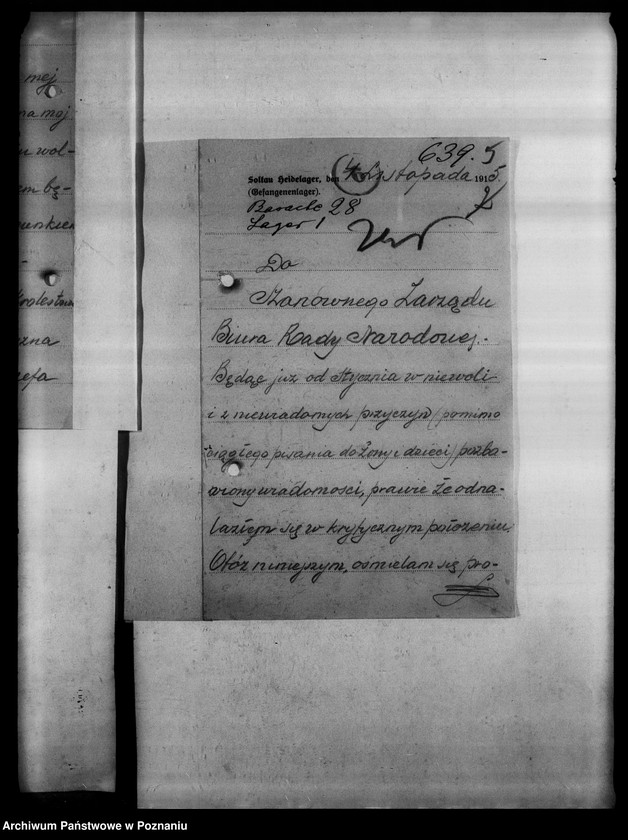 mej
na moj
wol-
bę-
zna
639.5
Soltau Heidelager, den 4 Listopada 1915.
(Gefangenenlager).
Baracke 28
Lager 1
Do
Szanownego Zarządu
Biura Rady Narodowej.
Będąc już od Stycznia w niewoli
i z niewiadomych przyczyn (pomimo
ciągłego pisania do żony i dzieci) pozba-
wiony wiadomości, prawie że odna-
lazłem się w krytycznym położeniu.
Otóż niniejszym, ośmielam się pro-
Archiwum Państwowe w Poznaniu